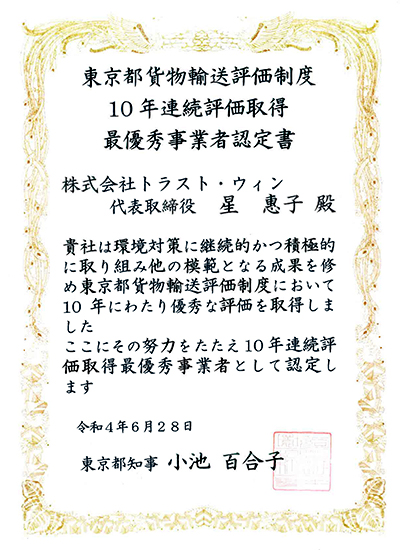 東京都貨物輸送評価制度
10年連続評価取得
最優秀事業者認定書
株式会社トラスト・ウィン
代表取締役 星 惠子 殿
貴社は環境対策に継続的かつ積極的
に取り組み他の模範となる成果を修
め東京都貨物輸送評価制度において
10年にわたり優秀な評価を取得しま
した
ここにその努力をたたえ10年連続評
価取得最優秀事業者として認定し
ます
令和4年6月28日
東京都知事 小池 百合子